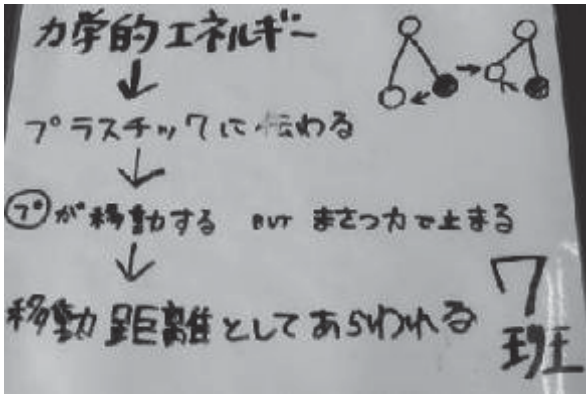 力学的エネルギー
↓
プラスチックに伝わる
↓
プが移動する BUT まさつ力で止まる
↓
移動距離としてあらわれる
7班